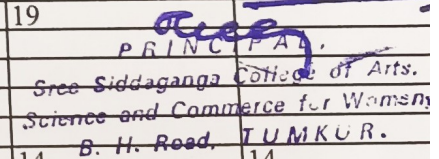 19
PRINCIPAL.
Sree Siddaganga College of Arts.
Science and Commerce for Women,
B. H. Road, TUMKUR.
14